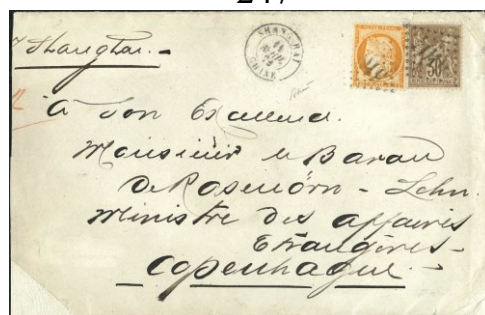 Shanghai. —
SHANG-HAI
CHINE
30
À Son Excellence.
Monsieur le Baron
de Rosenörn - Lehn.
Ministre des affaires
Etrangères -
Copenhague. -